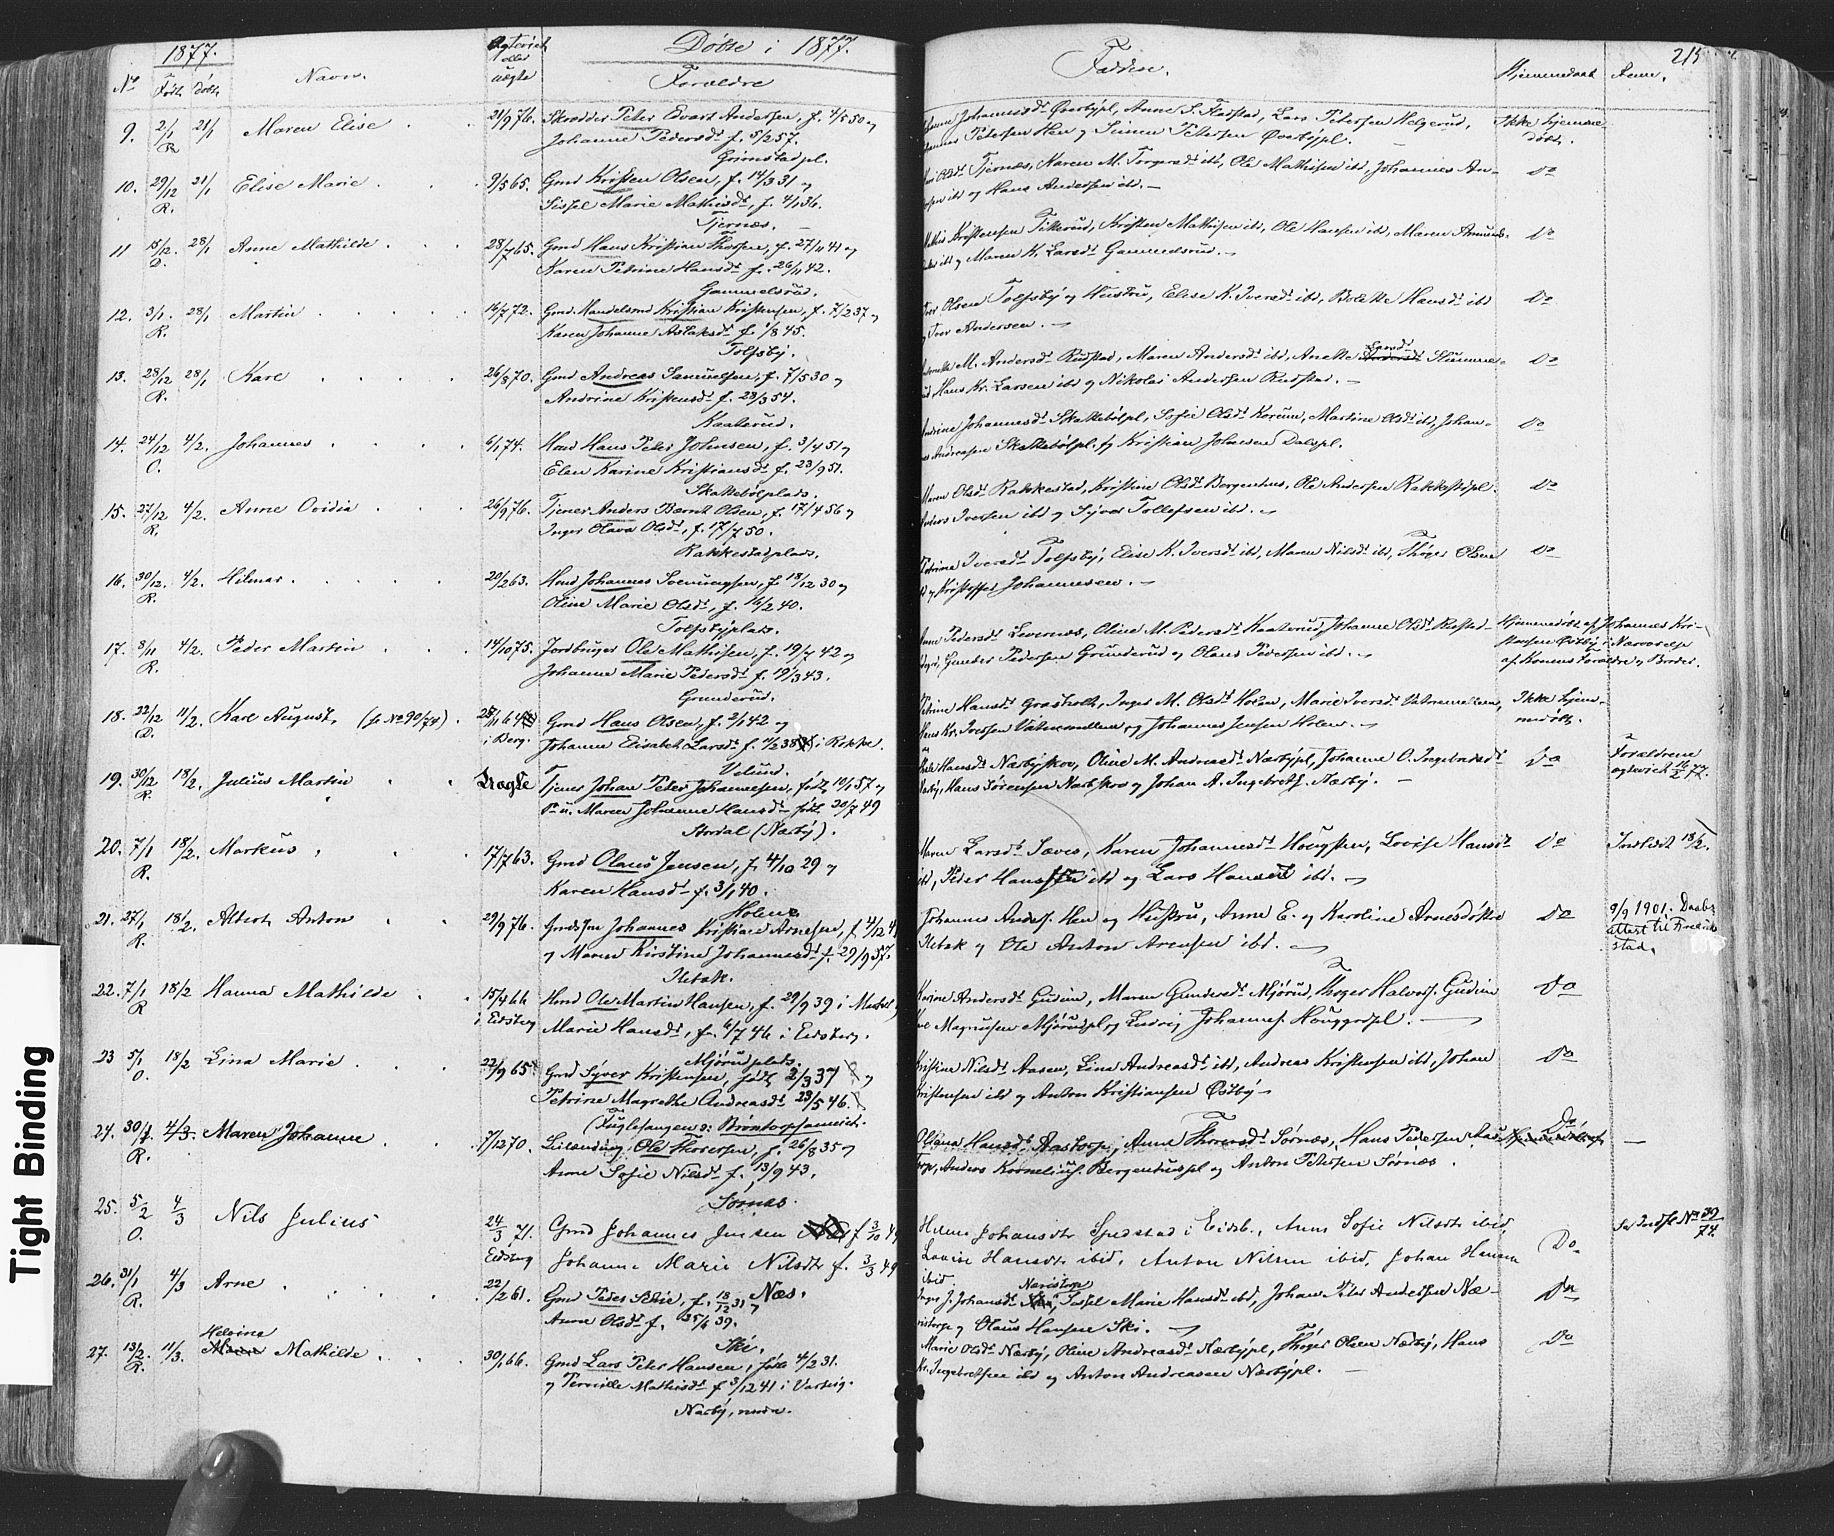 1877.
Døbte i 1877.
215
Nº Født Døbt Navn. Ægteviet eller uægte Forældre
Faddre. Hjemmedøbt Anm.
9. 2/1 R 21/1 Maren Elise 21/9 76. Skrædder Peter Evart Andersen, f. 4/5 50 og
Johanne Pedersdt f. 5/2 57.
Grimstadpl.
Johannesdt Øverbypl, Anne S. Flæstad, Lars Petersen Helgerud, Ikke hjemme
Petersen Hen og Simen Petersen Øverbypl. døbt.
10. 29/12 R. 21/1 Elise Marie 9/5 65. Gmd Kristen Olsen, f. 14/3 31 og
Sissel Marie Mathisdt, f. 4/1 36.
Tjernæs.
Olsdt Tjernæs, Karen M. Torgersdt ibd, Ole Mathisen ibd, Johannes An- Do
ibd og Hans Andersen ibd.
11 15/12 O. 28/1 Anne Mathilde 28/7 65. Gmd Hans Kristian Thorsen, f. 27/11 41 og
Karen Petrine Hansdt f. 26/11 42.
Gammelsrud.
Mathis Kristensen Fikkerud, Kristen Mathisen ibd, Ole Hansen ibd, Maren Amunds- Do
ibd og Maren K. Larsdt Gammelsrud.
12. 3/1. R. 28/1 Martin 16/7 72. Gmd. Mandelsmd Kristian Kristensen, f. 7/2 37 og
Karen Johanne Aslaksdt f. 1/8 45.
Tolfsby.
Iver Olsen Tolfsby og Hustru, Elise K. Iversdt ibd, Bolette Hansdt ibd Do
og Iver Andersen.
13. 28/12 R. 28/1 Karl 26/8 70. Gmd Andreas Samuelsen, f. 7/5 30 og
Andrine Kristensdt f. 28/3 54.
Kaaterud.
M. Andersdt Rudstad, Maren Andersdt ibd, Anette Larsdt Slumme- Do
Hans Kr. Larsen ibd og Nikolai Andersen Rudstad.
14. 24/12 O. 4/2. Johannes 6/1 74. Hmd Hans Peter Johnsen, f. 3/4 51 og
Elen Karine Kristiansdt f. 23/9 51.
Skattebølplads.
Johannesdt Skattebølpl, Sofie Olsdt Korum, Martine Olsdt ibd, Johan- Do
Andreasen Skattebølpl. og Kristian Johansen Dalspl.
15. 27/12 R. 4/2. Anne Ovidia 26/9 76. Tjener Anders Bernt Olsen, f. 17/4 56 og
Inger Olava Olsdt, f. 17/7 50.
Rakkestadplads.
Maren Olsdt Rakkestad, Kristine Olsdt Borgenhus, Ole Andersen Rakkestpl. Do
Anders Iversen ibd og Syver Tollefsen ibd.
16. 30/12. R. 4/2. Hilmar 20/2 63. Hmd Johannes Svenungsen, f. 18/12 30 og
Oline Marie Olsdt, f. 16/2 40.
Tolfsbyplads.
Petrine Iversdt Tolfsby, Elise K. Iversdt ibd, Maren Nilsdt ibd, Thoger Olsen Do
og Kristoffer Johannesen.
17. 8/11 R. 4/2. Peder Martin 14/10 75. Jordbruger Ole Mathisen, f. 19/7 42 og
Johanne Marie Pedersdt f. 19/3 43.
Grunderud.
Anne Pedersdt Levernæs, Oline M. Pedersdt Kaaterud, Johanne Olsdt Rustad- Hjemmedøbt af Johannes Kri-
Gunder Pedersen Grunderud og Olaus Pedersen ibd. stensen Østby i Nærværelse
af Konens Forældre og Broder.
18. 22/12 O. 11/2. Karl August, (jr. No 90/74) 28/11 64 i Berg. Gmd Hans Olsen, f. 2/1 42 og
Johanne Elisabeth Larsdt f. 11/2 38 i Rokke.
Velund.
Petrine Hansdt Grasholt, Inger M. Olsdt Holen, Marie Iversdt Vatvedmellem, Ikke hjem-
Hans Kr. Iversen Vatvedmellem og Johannes Jensen Holen. medøbt.
19. 30/12 R. 18/2. Julius Martin Uægte Tjener Johan Peter Johannesen, født 10/1 57 og
P. u. Maren Johanne Hansdt født 20/7 49
Årdal (Nærby).
Hansdt Nærbyskov, Oline M. Andreasdt Nærbypl, Johanne O. Ingebretsdt Do Forældrene
Nærby, Hans Sørensen Nærbskov og Johan A. Ingebretf. Nærby. ægteviet 16/2 77.
20. 7/1 R. 18/2. Markus 17/7 63. Gmd Olaus Jensen, f. 4/10 29 og
Karen Hansdt f. 3/1 40.
Holene
Maren Larsdt Sæves, Karen Johannesdt Hougsten, Lovise Hansdt Do Indledt 18/2.
ibd, Peder Hansen ibd og Lars Hansen ibd.
21. 27/1 R. 18/2. Albert Anton 29/9 76. Gmdsøn Johannes Kristian Arnesen, f. 4/12 4
og Maren Kirstine Johannesdt f. 29/9 57.
Iletak.
Johannes Andersf. Hen og Hustru, Anne E. og Karoline Arnesdøttre Do 9/9 1901. Daabs-
Iletak og Ole Anton Arnesen ibd. attest til Fredrik-
stad.
22. 7/1 R 18/2 Hanna Mathilde 15/4 66 i Eidsberg Hmd Ole Martin Hansen, f. 29/9 39 i
Marie Hansdt, f. 6/7 46 i Eidsberg.
Mjørudplads.
Karine Andersdt Gudim, Maren Gundersdt Mjørud, Thoger Halvorsf. Gudim Do
Magnusen Mjørudpl. og Ludvig Johannesf. Houggrdpl.
23 5/1 O. 18/2 Lina Marie 22/9 65 Gmd Syver Kristensen, født 2/3 37 og
Petrine Magrethe Andreasdt 23/5 46.
(Fuglesangen o: Brøntorpsameiet.
Kristine Nilsdt Aasen, Lina Andreasdt ibd, Andreas Kristensen ibd, Johan Do
Kristensen ibd og Anton Kristiansen Østby
24. 30/1 R. 4/3. Maren Johanne 7/12 70. Leilænding Ole Thoresen, f. 26/8 35 og
Anne Sofie Nilsdt f. 13/9 43.
Sørnæs.
Oliana Hansdt Aastorp, Anne Thoresdt Sørnæs, Hans Pedersen Aas- Do
torp, Anders Korneliusf. Borgenhuspl og Anton Petersen Sørnæs.
25. 5/2 O. 4/3 Nils Julius 24/3 71. Eidsberg Gmd Johannes Jensen f. 3/10 49
Johanne Marie Nilsdtr f. 3/3 49
Næs.
Helene Johansdtr Spydstad i Eidsb., Anne Sofie Nilsdtr ibid, Do Se Indfl. No 39/74.
Lovise Hansdtr ibid, Anton Nilsen ibid, Johan Hansen
ibid.
26. 31/1 R. 4/3 Arne 22/2 61. Gmd Peder Arnie, f. 18/12 31 og
Anne Olsdt f. 25/4 39.
Ski.
Inger J. Johansdt Næristorp, Sissel Marie Hansdt ibd, Johan Peter Andersen Næ- Do
ristorp og Olaus Hansen Ski.
27. 13/2. R. 11/3. Helvine Mathilde 30/1 66. Gmd Lars Peter Hansen, født 4/2 31.
og Pernille Mathisdt f. 3/12 41 i Varteig.
Nærby, nedre.
Marie Olsdt Nærby, Oline Andreasdt Nærbypl, Thoger Olsen Nærby, Hans Do
Kr. Ingebretsen ibd og Anton Andreasen Nærbypl.
Tight Binding